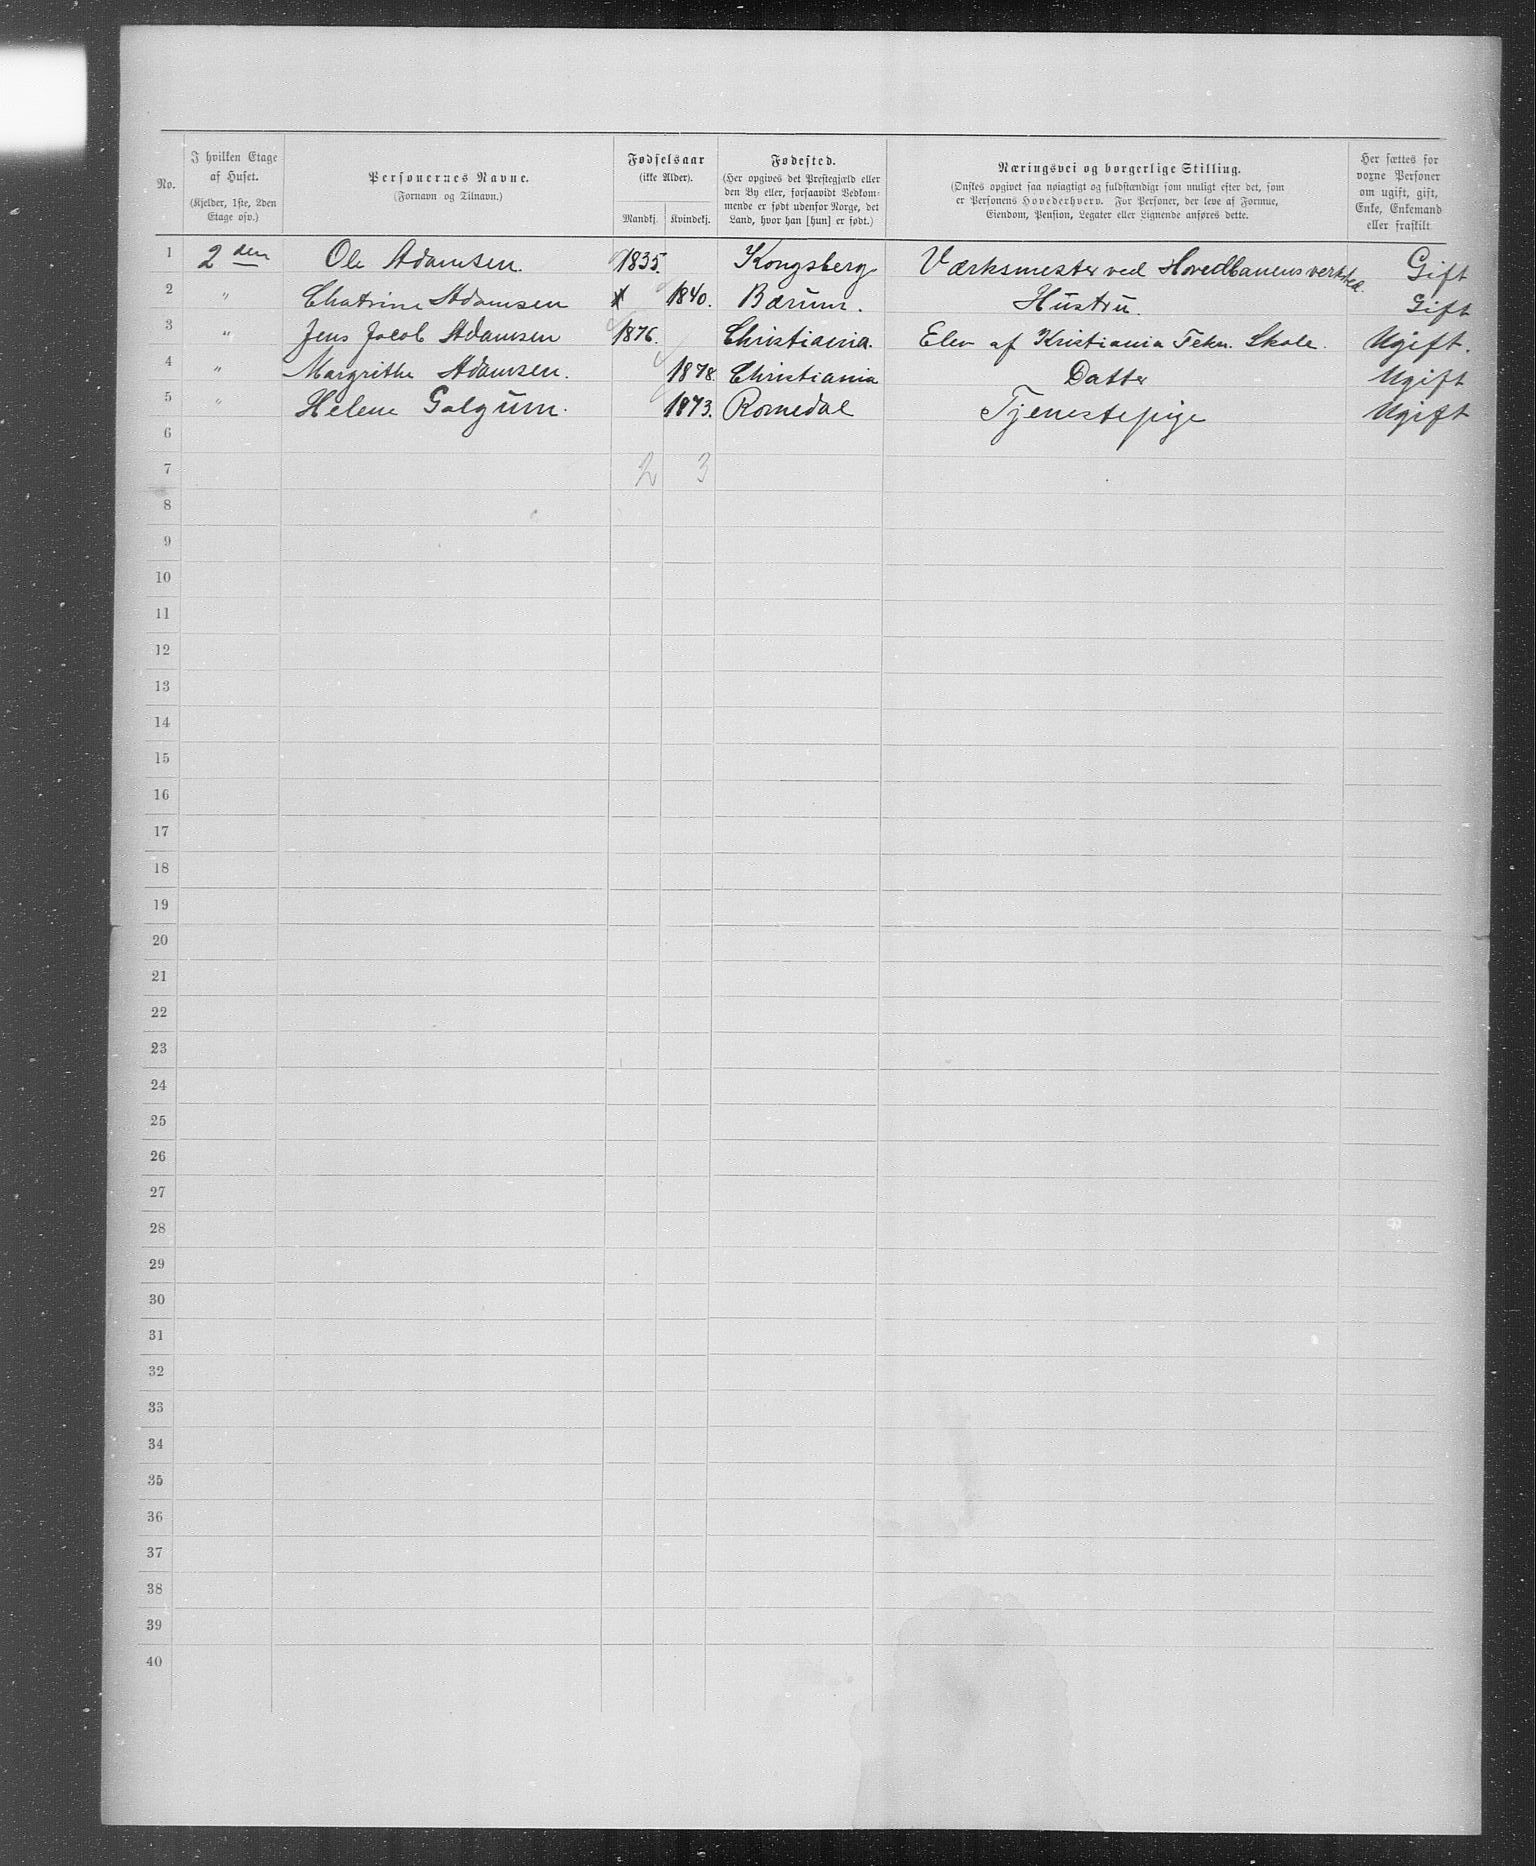 No.
I hvilken Etage af Huset.
(Kjelder, 1ste, 2den Etage osv.)
Personernes Navne.
(Fornavn og Tilnavn.)
Fødselsaar
(ikke Alder).
Mandkj. Kvindekj.
Fødested.
(Her opgives det Prestegjæld eller den By eller, forsaavidt Vedkommende er født udenfor Norge, det Land, hvor han [hun] er født.)
Næringsvei og borgerlige Stilling.
(Ønskes opgivet saa nøiagtigt og fuldstændigt som muligt efter det, som er Personens Hovederhverv. For Personer, der leve af Formue, Eiendom, Pension, Legater eller Lignende anføres dette.
Her sættes for voxne Personer om ugift, gift, Enke, Enkemand eller fraskilt
1 2den Ole Adamsen. 1835. Kongsberg Værksmester ved Hovedbanens verksted. Gift
2 " Chatrine Adamsen 1840. Bærum. Hustru. Gift
3 " Jens Jacob Adamsen 1876. Christiania. Elev af Kristiania Tekn. Skole. Ugift.
4 " Margrithe Adamsen. 1878. Christiania Datter Ugift
5 " Helene Galgum. 1873. Romedal Tjenestepige Ugift
6
7 2 3
8
9
10
11
12
13
14
15
16
17
18
19
20
21
22
23
24
25
26
27
28
29
30
31
32
33
34
35
36
37
38
39
40